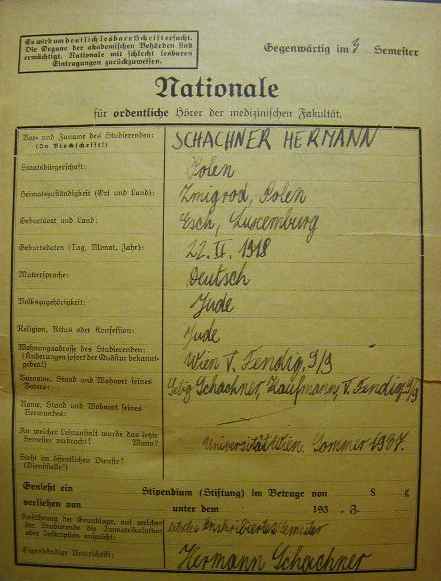 Es wird um deutlich lesbare Schrift ersucht.
Die Organe der akademischen Behörden sind
ermächtigt, Nationale mit schlecht lesbaren
Eintragungen zurückzuweisen.
Gegenwärtig im 3 Semester
Nationale
für ordentliche Hörer der medizinischen Fakultät.
Vor- und Zuname des Studierenden: SCHACHNER HERMANN
(In Blockschrift!)
Staatsbürgerschaft: Polen
Heimatzuständigkeit (Ort und Land): Zmigrod, Polen
Geburtsort und Land: Esch, Luxemburg
Geburtsdaten (Tag, Monat, Jahr): 22. II. 1918
Muttersprache: Deutsch
Volkszugehörigkeit: Jude
Religion, Ritus oder Konfession: Jude
Wohnungsadresse des Studierenden: Wien V. Fendig. 9/9
(Änderungen sofort der Quästur bekannt-
geben!)
Vorname, Stand und Wohnort seines
Vaters: Schachner, Kaufmann, V. Fendig. 9/9
Name, Stand und Wohnort seines
Vormundes:
An welcher Lehranstalt wurde das letzte
Semester verbracht? Wann? Universität Wien. Sommer 1937.
Steht im öffentlichen Dienste?
(Dienststelle?)
Genießt ein Stipendium (Stiftung) im Betrage von S g
verliehen von unter dem 193 Z.
Anführung der Grundlage, auf welcher
der Studierende die Immatrikulation
oder Inskription anspricht: Semester
Eigenhändige Unterschrift: Hermann Schachner